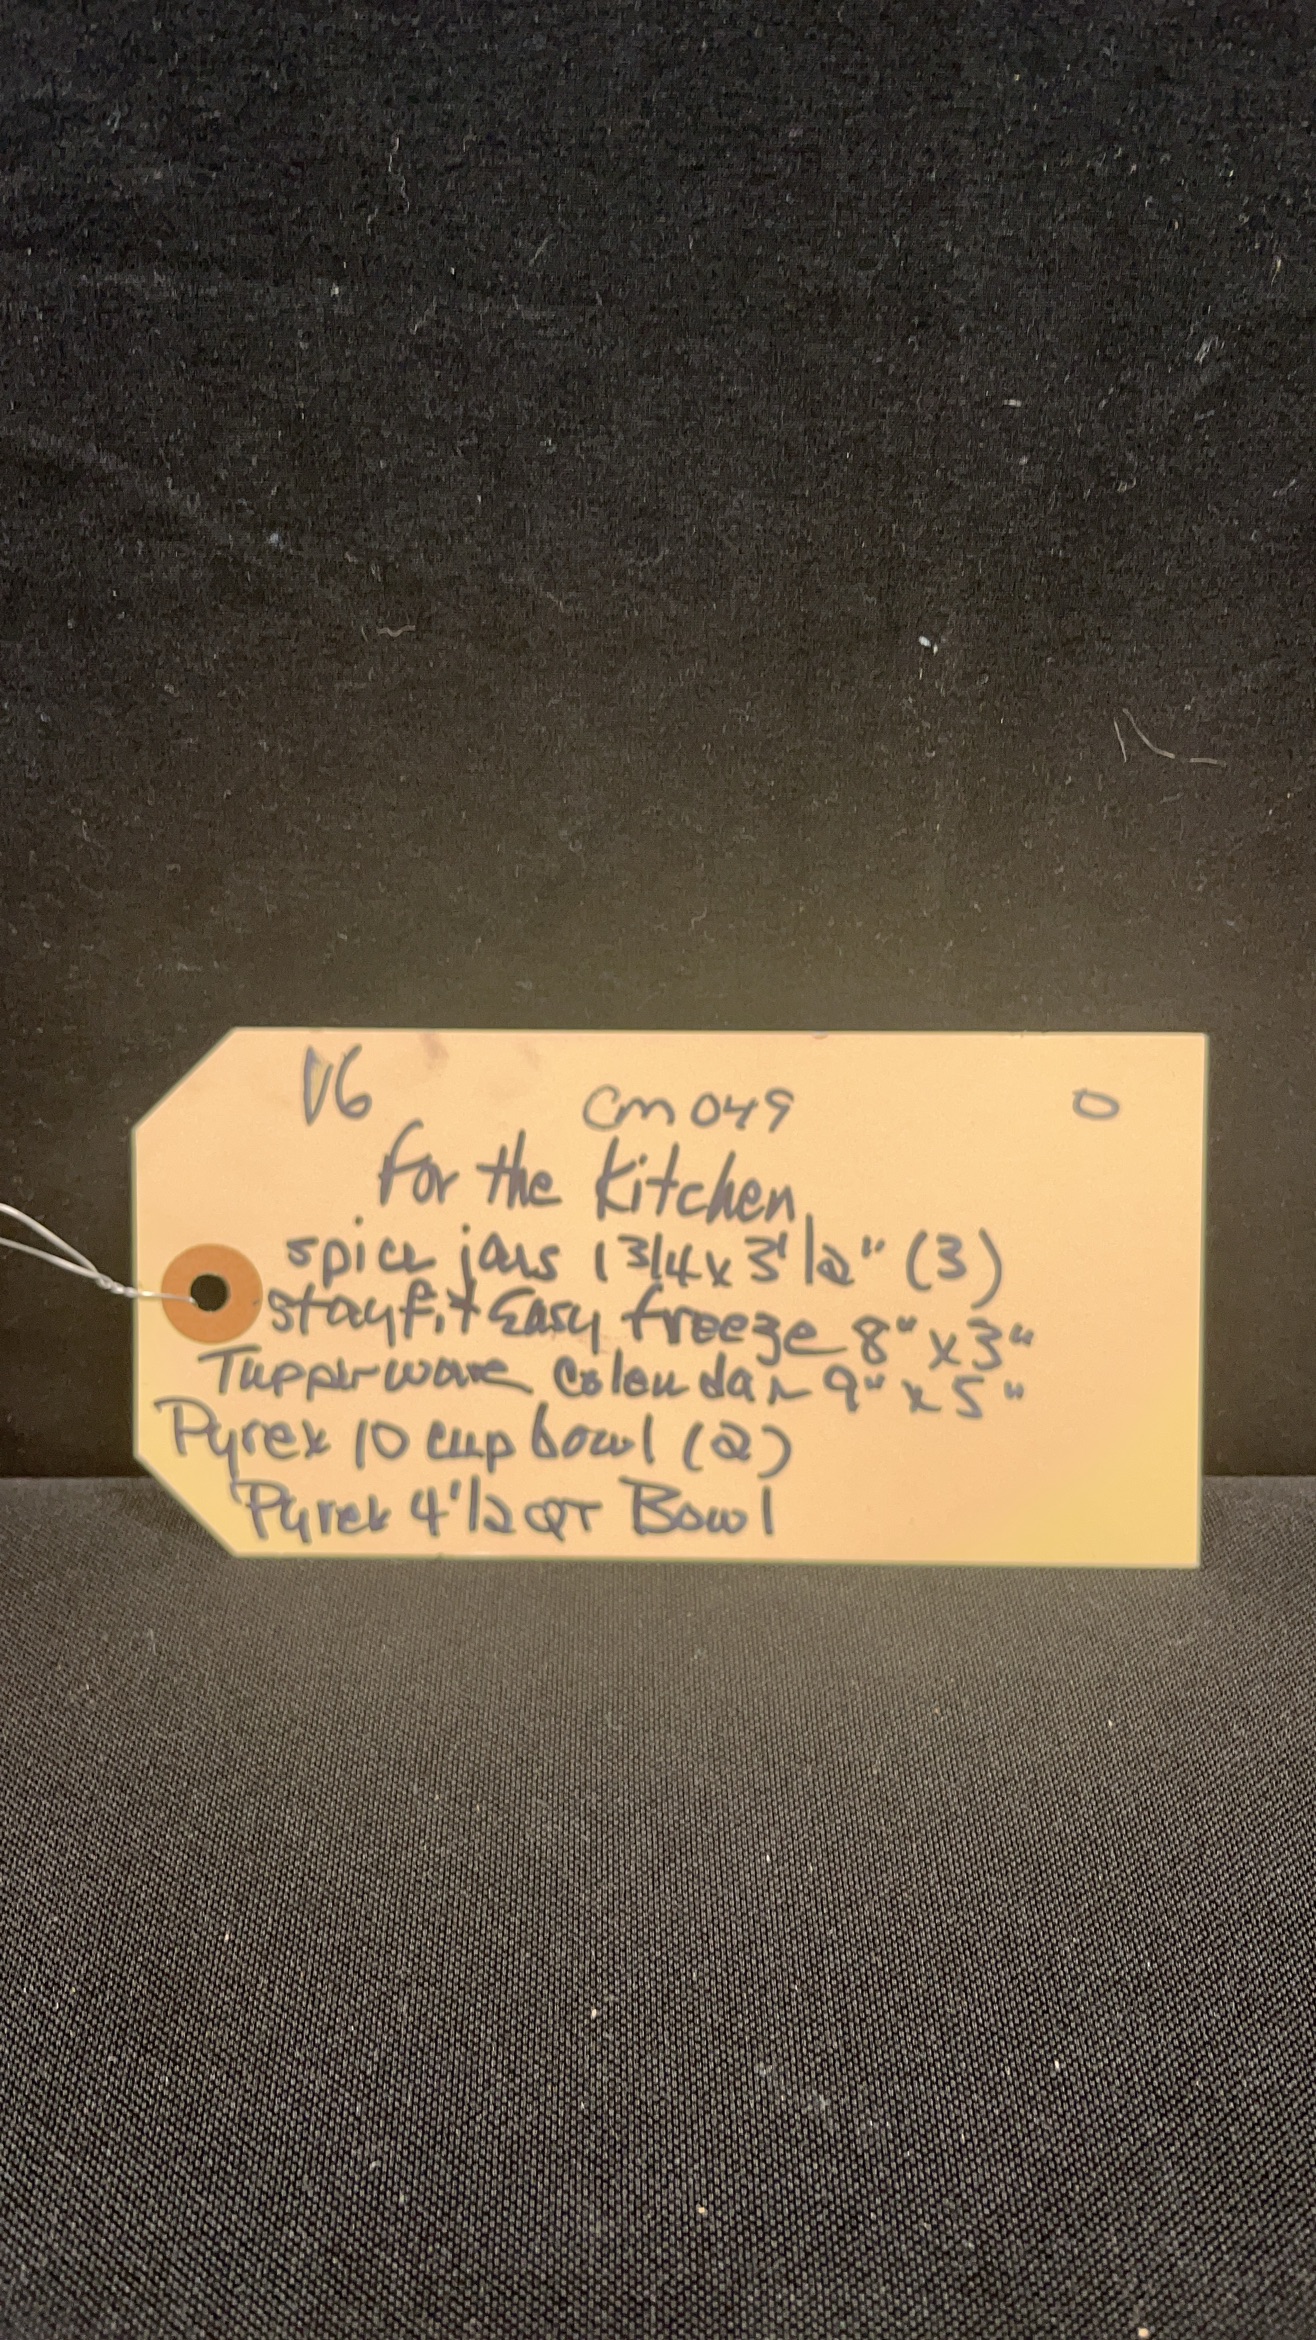 V6 Cm 049 0
For the Kitchen
spice jars 1 3/4 x 3 1/2" (3)
stayfit Easy freeze 8" x 3"
Tupperware Colendar 9" x 5"
Pyrex 10 cup bowl (2)
Pyrex 4 1/2 QT Bowl